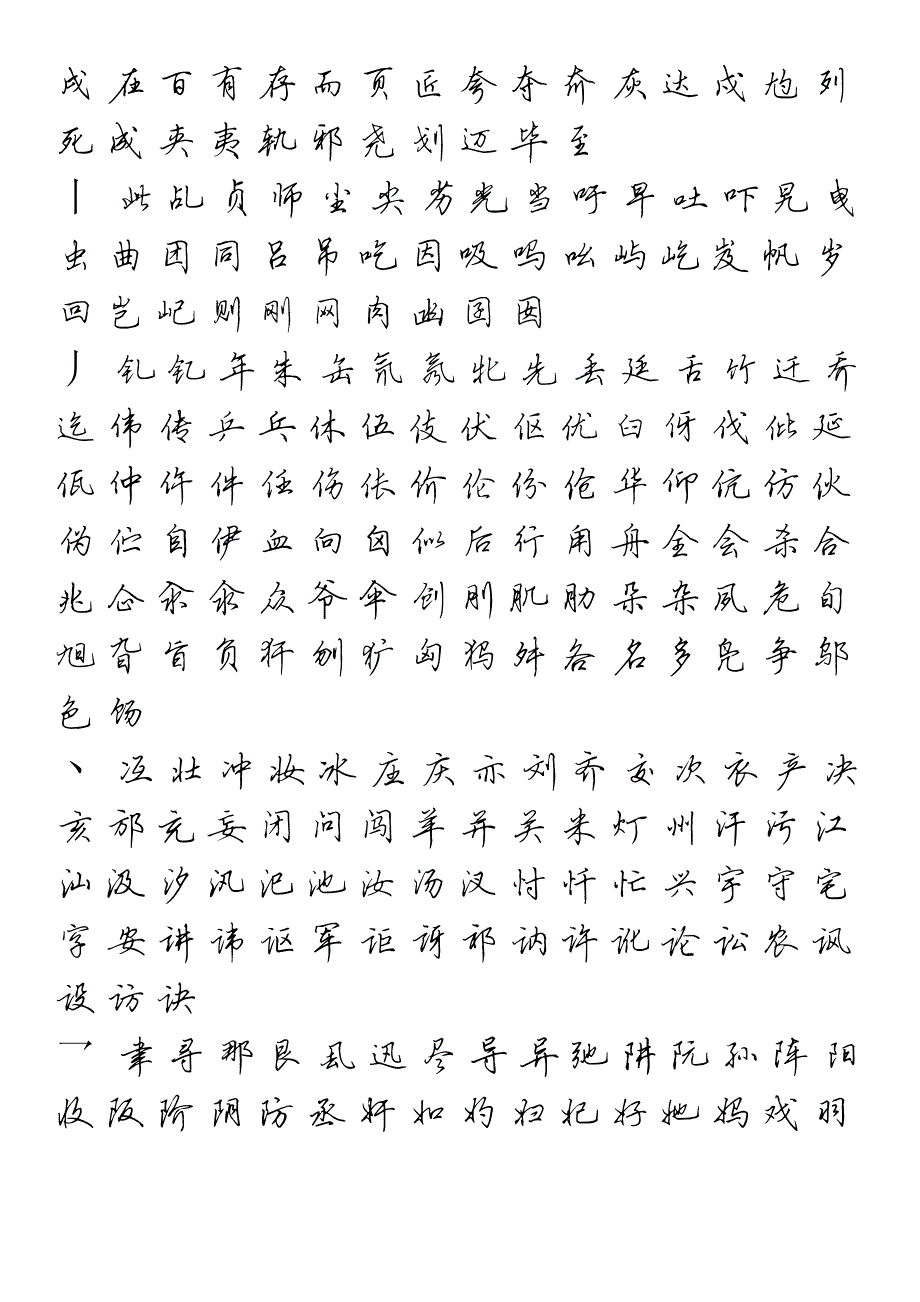 戌在百有存而页匠夸夺夼灰达戍尥列
死成夹夷轨邪尧划迈毕至
丨 此乩贞师尘尖劣光当吁早吐吓旯曳
虫曲团同吕吊吃因吸吗吆屿屹岌帆岁
回岂屺则刚网肉凼囝囡
丿 钆钇年朱缶氘氖牝先丢廷舌竹迁乔
迄伟传乒乓休伍伎伏伛优臼伢伐仳延
佤仲仵件任伤伥价伦份伧华仰伉仿伙
伪伫自伊血向囟似后行甪舟全会杀合
兆企汆氽众爷伞创刖肌肋朵杂夙危旬
旭旮旨负犴刎犷匈犸舛各名多凫争邬
色饧
丶 冱壮冲妆冰庄庆亦刘齐交次衣产决
亥邡充妄闭问闯羊并关米灯州汗污江
汕汲汐汛汜池汝汤汊忖忏忙兴宇守宅
字安讲讳讴军讵讶祁讷许讹论讼农讽
设访诀
乛 聿寻那艮厾迅尽导异弛阱阮孙阵阳
收阪阶阴防丞奸如妁妇妃好她妈戏羽